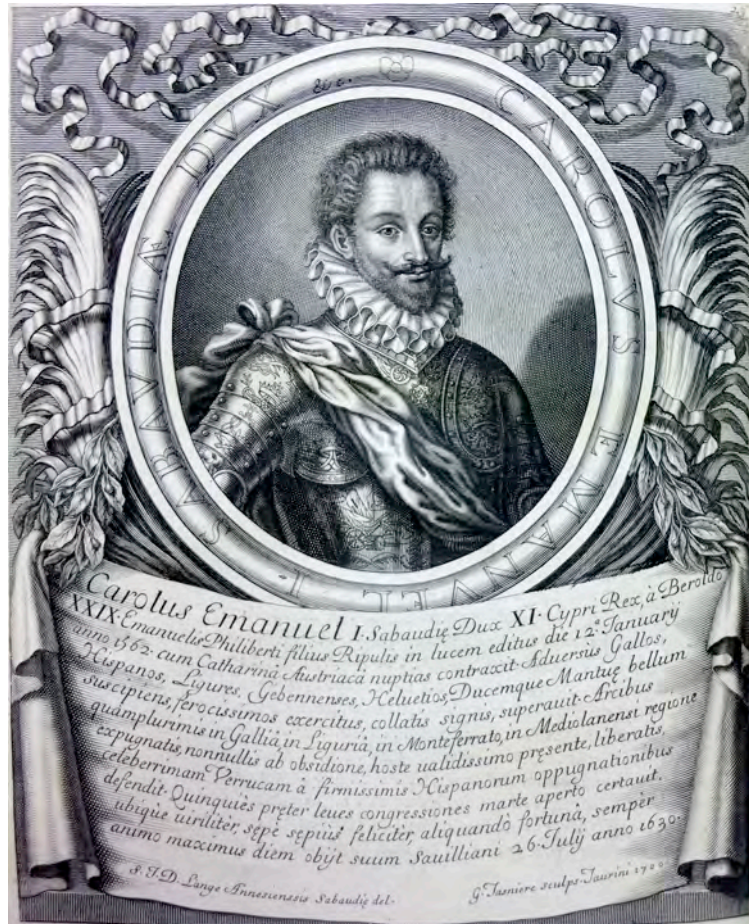 CAROLVS EMANVEL I. SABAVDIÆ DVX &c.
Carolus Emanuel I. Sabaudię Dux XI. Cypri Rex, à Beroldo
XXIX. Emanuelis Philiberti filius Ripulis in lucem editus die 12.ª Januarij
anno 1562. cum Catharinâ Austriacâ nuptias contraxit. Aduersùs Gallos,
Hispanos, Ligures, Gebennenses, Heluetios, Ducemque Mantuę bellum
suscipiens, ferocissimos exercitus, collatis signis, superauit. Arcibus
quamplurimis in Galliâ, in Liguriâ, in Monteferrato, in Mediolanensi regione
expugnatis, nonnullis ab obsidione, hoste ualidissimo pręsente, liberatis,
celeberrimam Verrucam à firmissimis Hispanorum oppugnationibus
defendit. Quinquiès pręter leues congressiones marte aperto certauit.
ubique uiriliter, sępè sępiùs feliciter, aliquandò fortunâ, sempèr
animo maximus diem obijt suum Sauilliani 26. Julij anno 1630.
S. J. D. Lange Annesiensis Sabaudię del.
G. Tasniere sculps. Taurini 1700